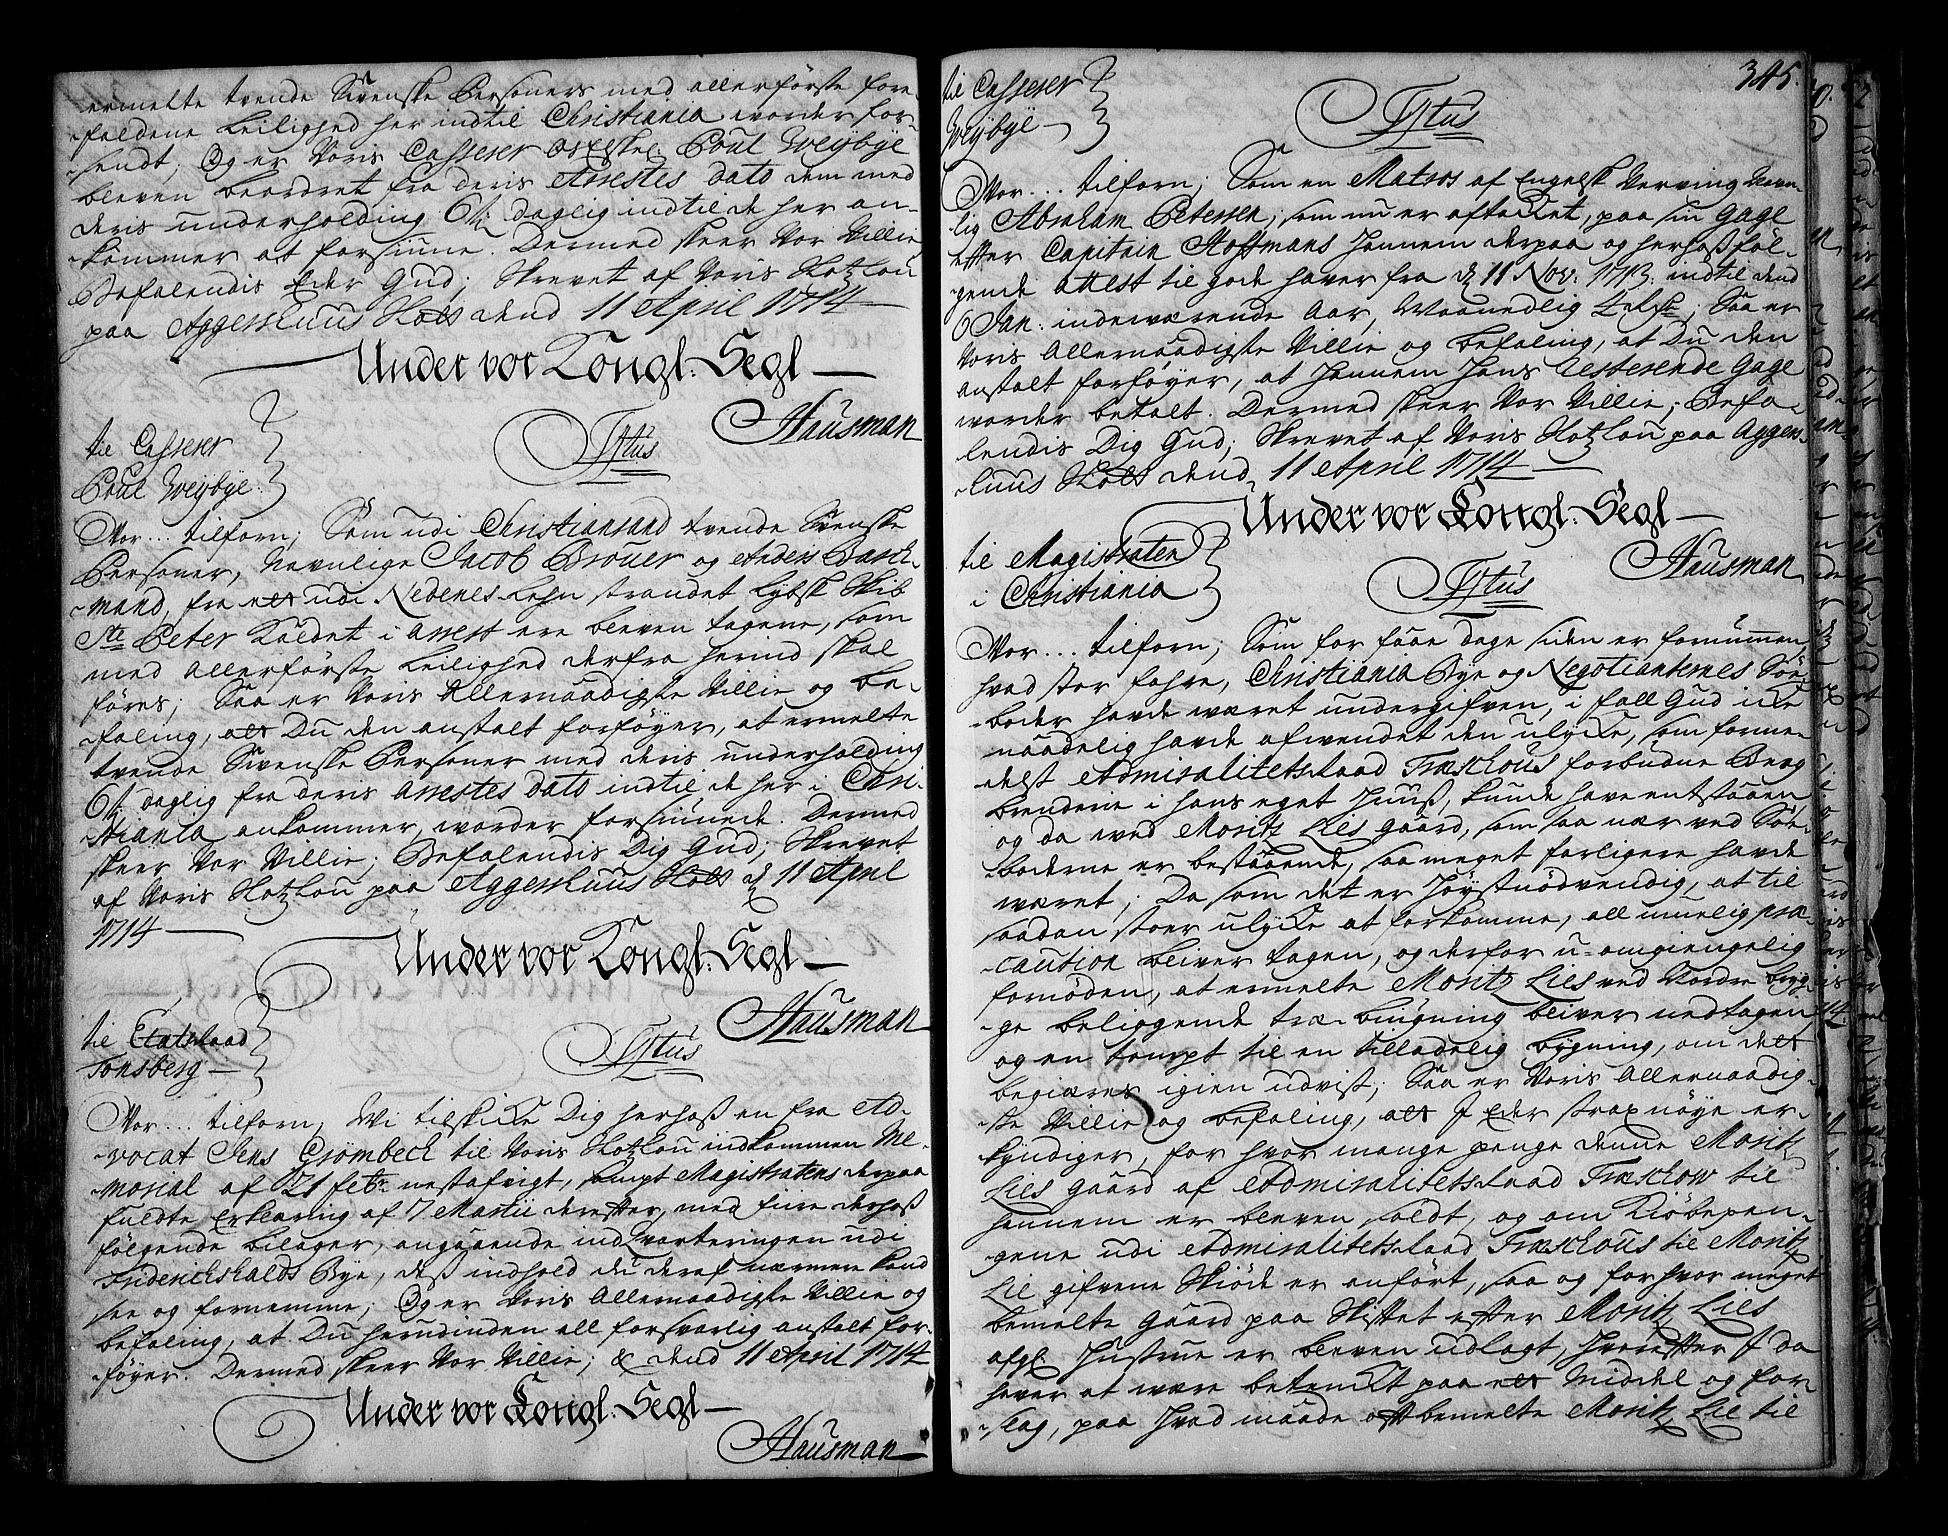 ermelte tvende Svenske Personers med allerförste fore-
-faldene Leilighed her indtil Christiania worder for-
-sendt; Og er Voris Casserer Poul Weybye
bleven beordret fra deris Arrestes Dato dem med
deris underholding 6 s. daglig indtil de her an-
-kommer at forsiune. Dermed skeer Vor Villie
Befalendis Eder Gud; Skrevet af Voris Slotzlou
paa Aggershuus Slots dend 11 April 1714
Under vor Kongl: Segl
Hausman
til Casserer
Poul Weybye.
Tÿtus
Vor... tilforn; Som udi Christiansand tvende Svenske
Personer, Navnlige Jacob Brouer og Anders Barck-
-mand, fra et udi Nedenes Lehn strandet Lybsk Skib
Ste Peter Kaldet i Arrest ere bleven tagene, som
med allerförste Leilighed derfra herind skal
föres; Saa er Voris Allernaadigste Villie og be-
-faling, at Du den anstalt forföyer, at ermelte
tvende Svenske Personer med deris underholding
6 s. daglig fra deris Arrestes Dato indtil de her i Chri-
-stiania ankommer, worder forsiunede. Dermed
skeer Vor Villie; Befalendis Dig Gud; Skrevet
af Voris Slotzlou paa Aggershuus Slots d. 11 April
1714
Under vor Kongl: Segl
Hausman
til Etatsraad
Tonsberg
Tÿtus
Vor... tilforn, Wi tilskicke Dig herhoß en fra Ad-
-vocat Jens Grömbech til Voris Slotzlou indkommen Me-
-morial af 21 febr. nestafvigt, sampt Magistratens derpaa
fuldte Erklaring af 7 Martii derefter, med fiire derhoß
fölgende bilager, angaaende indqvarteringen udi
Friderichshalds Bye, deß indhold du deraf nærmere kand
see og fornemme; Og er Voris Allernaadigste Villie og
befaling, at Du herudinden all forsvarlig anstalt for-
föyer. Dermed skeer Vor Villie; & dend 11 April 1714
Under vor Kongl: Segl
Hausman
345.
til Casserer
Weybye
Tÿtus
Vor... tilforn; Som en Matros af Engelsk Verving Navn-
lig Abraham Petersen, som nu er aftacket, paa sin Gage
efter Capitain Hoffmans hannem derpaa og herhoß föl-
gende attest til gode haver fra d. 11 Nov: 1713. indtil dend
6 Jan: indeværende Aar, Maanedlig 4 rd.; Saa er
Voris Allernaadigste Villie og befaling, at Du den
anstalt forföyer, at hannem hans resterende Gage
worder betalt. Dermed skeer Vor Villie; Befa-
lendis Dig Gud; Skrevet af Voris Slotzlou paa Aggers-
-huus Slots dend 11 April 1714
Under vor Kongl: Segl
Hausman
til Magistraten
i Christiania
Tÿtus
Vor... tilforn; Som for faae dage siden er fornummen,
hvad stor fahre, Christiania Bye og Negotianternes Söe-
-boder havde wæret undergifven, i fall Gud icke
naadelig havde afwendet den ulycke, som forme-
delst Admiralitetsraad Træschous forbudne Brag
brenderie i hans eget Huuß, kunde have entstaaen
og da wed Moritz Lies gaard, som saa nær ved Söe-
-boderne er bestaaende, saa meget farligere havde
wæret; Da som det er höystnödvendig, at til
saadan stoer ulycke at forkomme, all muelig præ-
-caution bliver tagen, og derfor u-omgiengelig
fornöden, at ermelte Moritz Lies ved Nordre brÿg-
-ge beliggende træ-bÿugning bliver nedtagen
og en tompt til en tilladelig bÿgning, om det
begiæres igien udvist; Saa er Voris Allernaadig-
-ste Villie og befaling, at I Eder strax nöye er-
kyndiger, for hvor mange penge denne Moritz
Lies gaard af Admiralitetsraad Træschow til
hannem er bleven soldt, og om Kiöbepen-
-gene udi Admiralitetsraad Træschous til Moritz
Lie gifvene Skiöde er anfört, saa og for hvor meget
bemelte Gaard paa Skiftet efter Moritz Lies
afgl. Hustrue er bleven udlagt, hvorefter I da
haver at være betenckt paa et Middel og for-
-slag, paa hvad maade oftbemelte Moritz Lie til